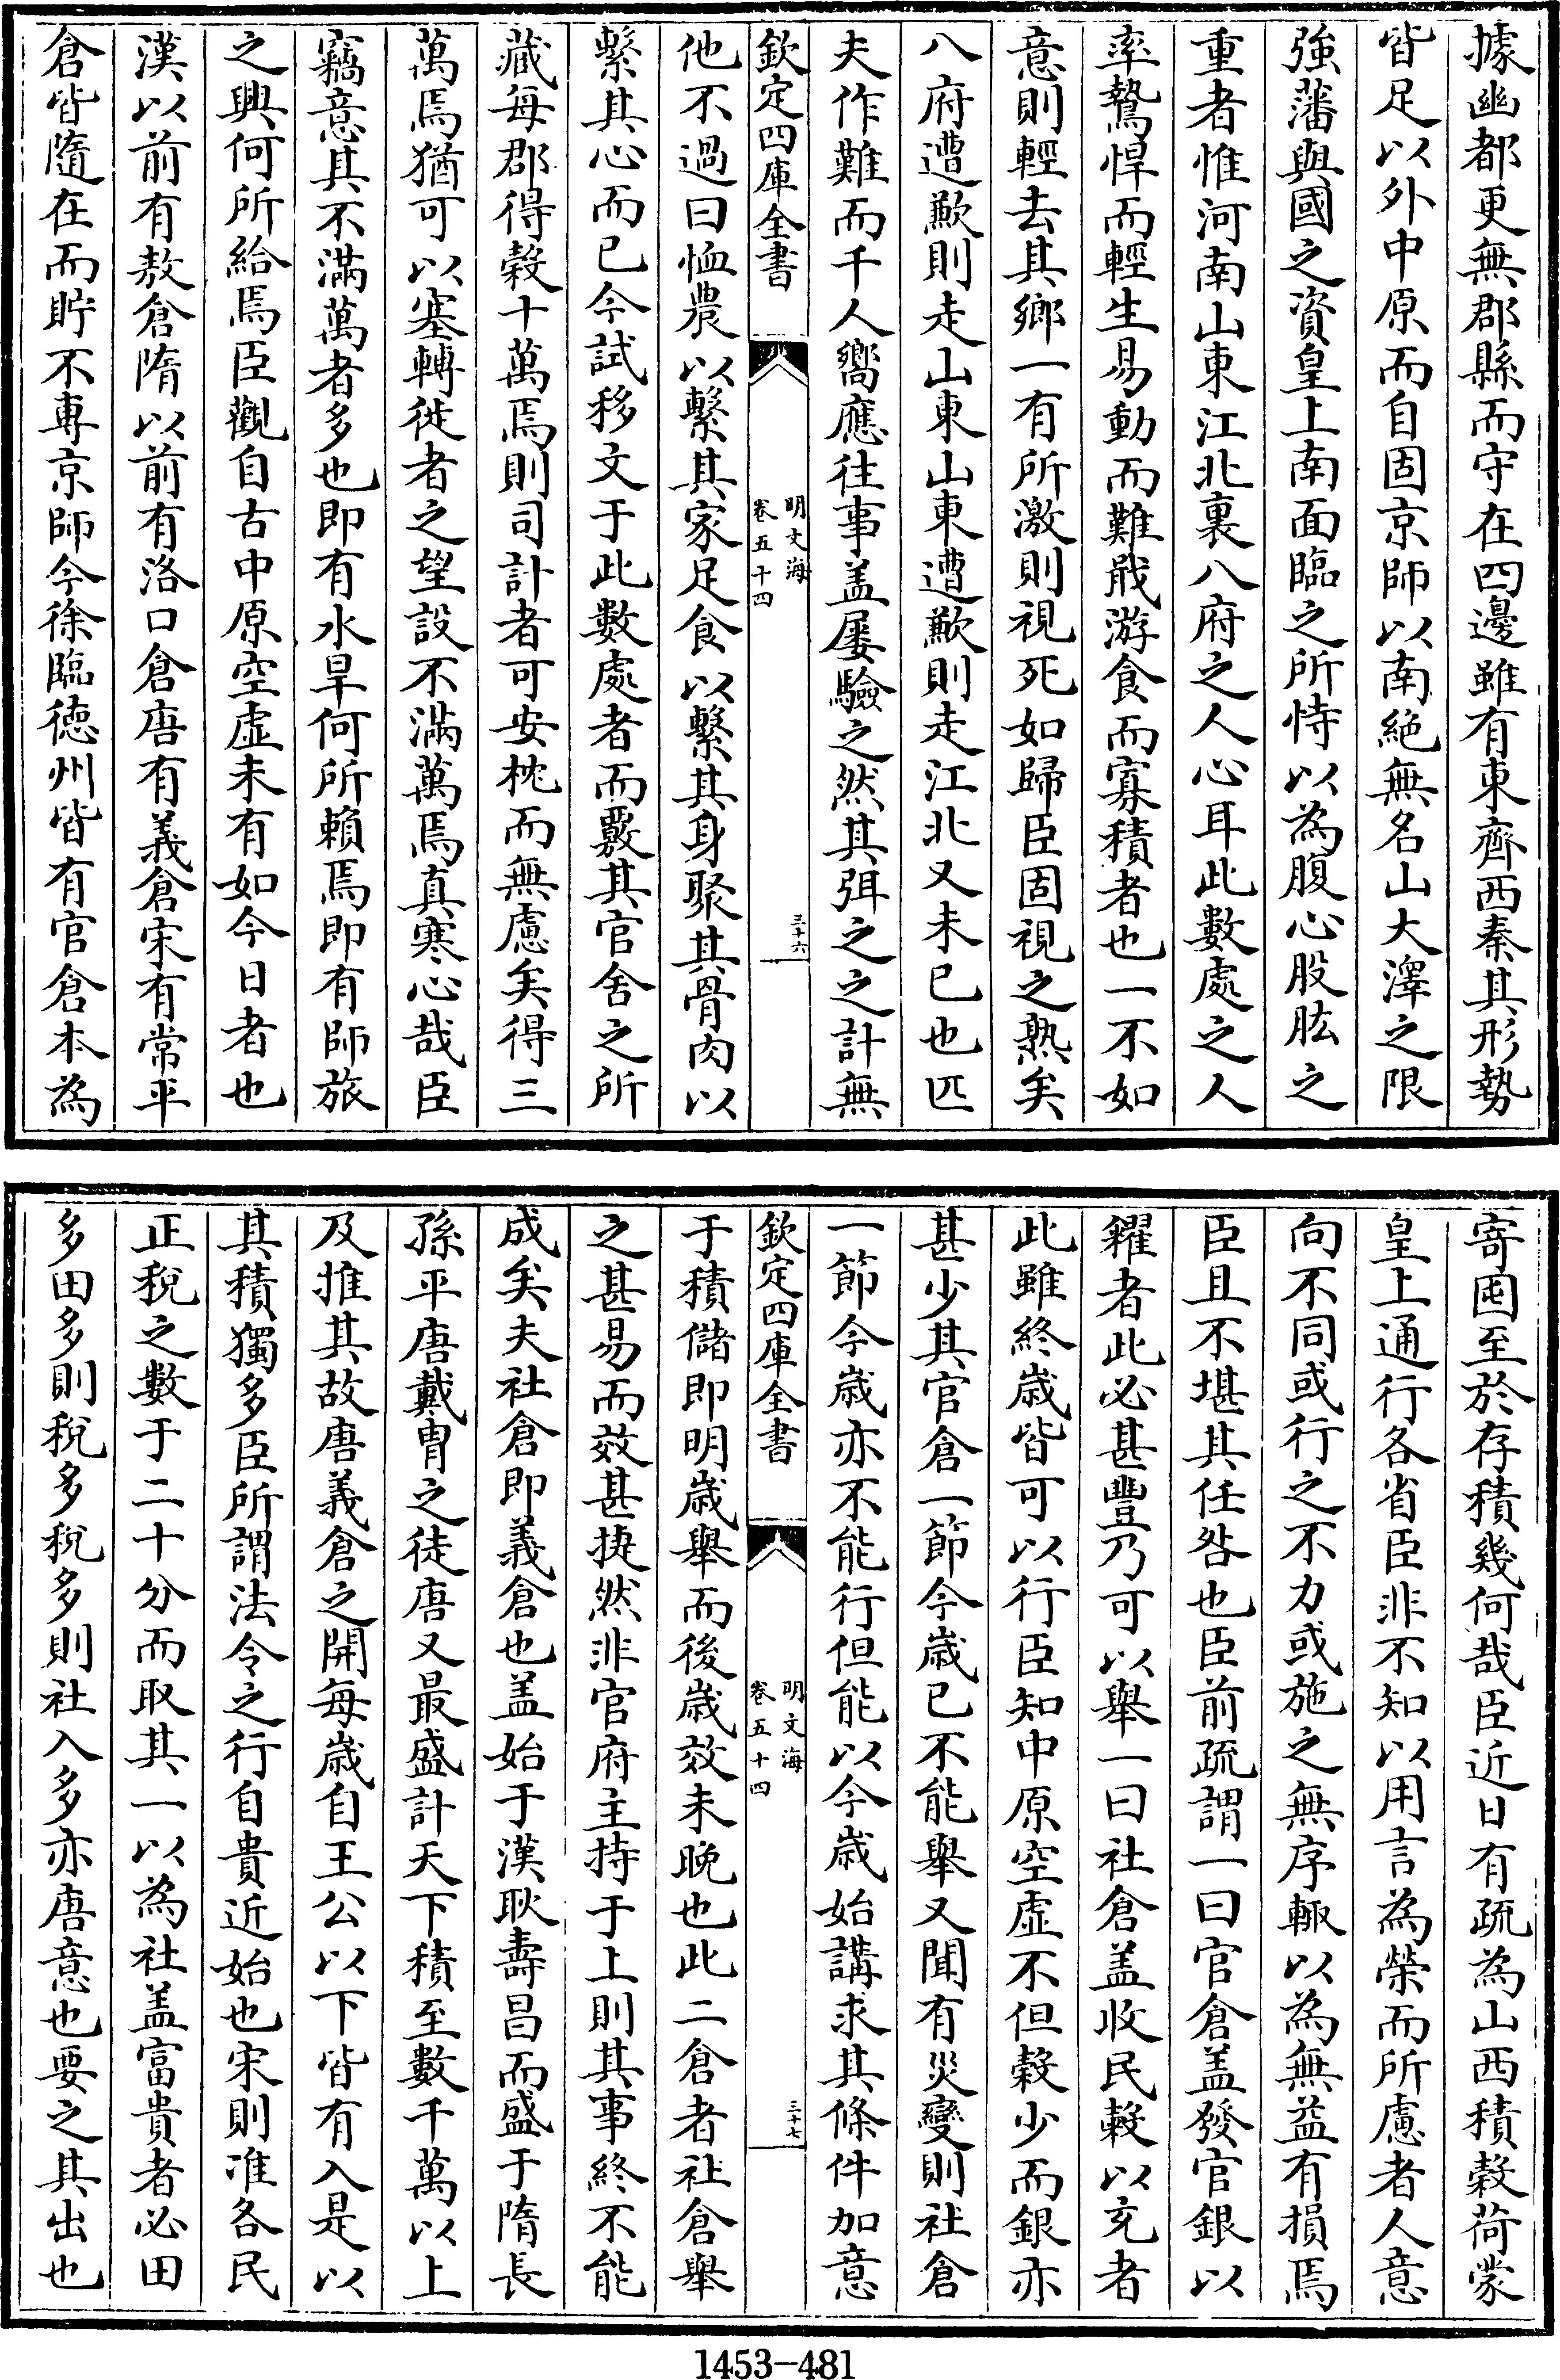 據幽都更無郡縣而守在四邊雖有東齊西秦其形勢
皆足以外中原而自固京師以南絶無名山大澤之限
強藩與國之資皇上南面臨之所恃以為腹心股肱之
重者惟河南山東江北裏八府之人心耳此數處之人
率驁悍而輕生易動而難戢游食而寡積者也一不如
意則輕去其鄉一有所激則視死如歸臣固視之熟矣
八府遭歉則走山東山東遭歉則走江北又未已也匹
夫作難而千人嚮應往事盖屢驗之然其弭之之計無
欽定四庫全書
明文海
卷五十四
三十六
他不過曰恤農以繫其家足食以繫其身聚其骨肉以
繫其心而已今試移文于此數處者而覈其官舍之所
藏每郡得榖十萬焉則司計者可安枕而無慮矣得三
萬焉猶可以塞轉徙者之望設不滿萬焉真寒心哉臣
竊意其不滿萬者多也即有水旱何所賴焉即有師旅
之興何所給焉臣觀自古中原空虛未有如今日者也
漢以前有敖倉隋以前有洛口倉唐有義倉宋有常平
倉皆隨在而貯不專京師今徐臨徳州皆有官倉本為
寄囤至於存積幾何哉臣近日有疏為山西積榖荷蒙
皇上通行各省臣非不知以用言為榮而所慮者人意
向不同或行之不力或施之無序輙以為無益有損焉
臣且不堪其任咎也臣前疏謂一曰官倉盖發官銀以
糴者此必甚豐乃可以舉一曰社倉盖收民榖以充者
此雖終歲皆可以行臣知中原空虛不但榖少而銀亦
甚少其官倉一節今歲已不能舉又聞有災變則社倉
一節今歲亦不能行但能以今歲始講求其條件加意
欽定四庫全書
明文海
卷五十四
三十七
于積儲即明歲舉而後歲效未晚也此二倉者社倉舉
之甚易而效甚捷然非官府主持于上則其事終不能
成矣夫社倉即義倉也盖始于漢耿壽昌而盛于隋長
孫平唐戴胄之徒唐又最盛計天下積至數千萬以上
及推其故唐義倉之開每歲自王公以下皆有入是以
其積獨多臣所謂法令之行自貴近始也宋則准各民
正稅之數于二十分而取其一以為社盖富貴者必田
多田多則稅多稅多則社入多亦唐意也要之其出也
1453-481